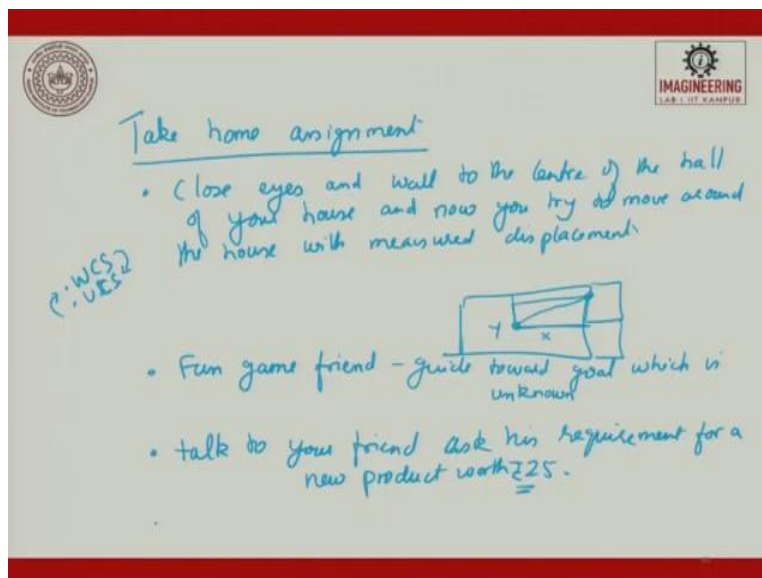 IMAGINEERING
LAB | IIT KANPUR
Take home assignment
• Close eyes and walk to the centre of the hall
of your house and now you try to move around
the house with measured displacement.
• WCS
• UCS
Y
X
• Fun game friend - guide toward goal which is
unknown
• talk to your friend ask his requirement for a
new product worth ₹25.